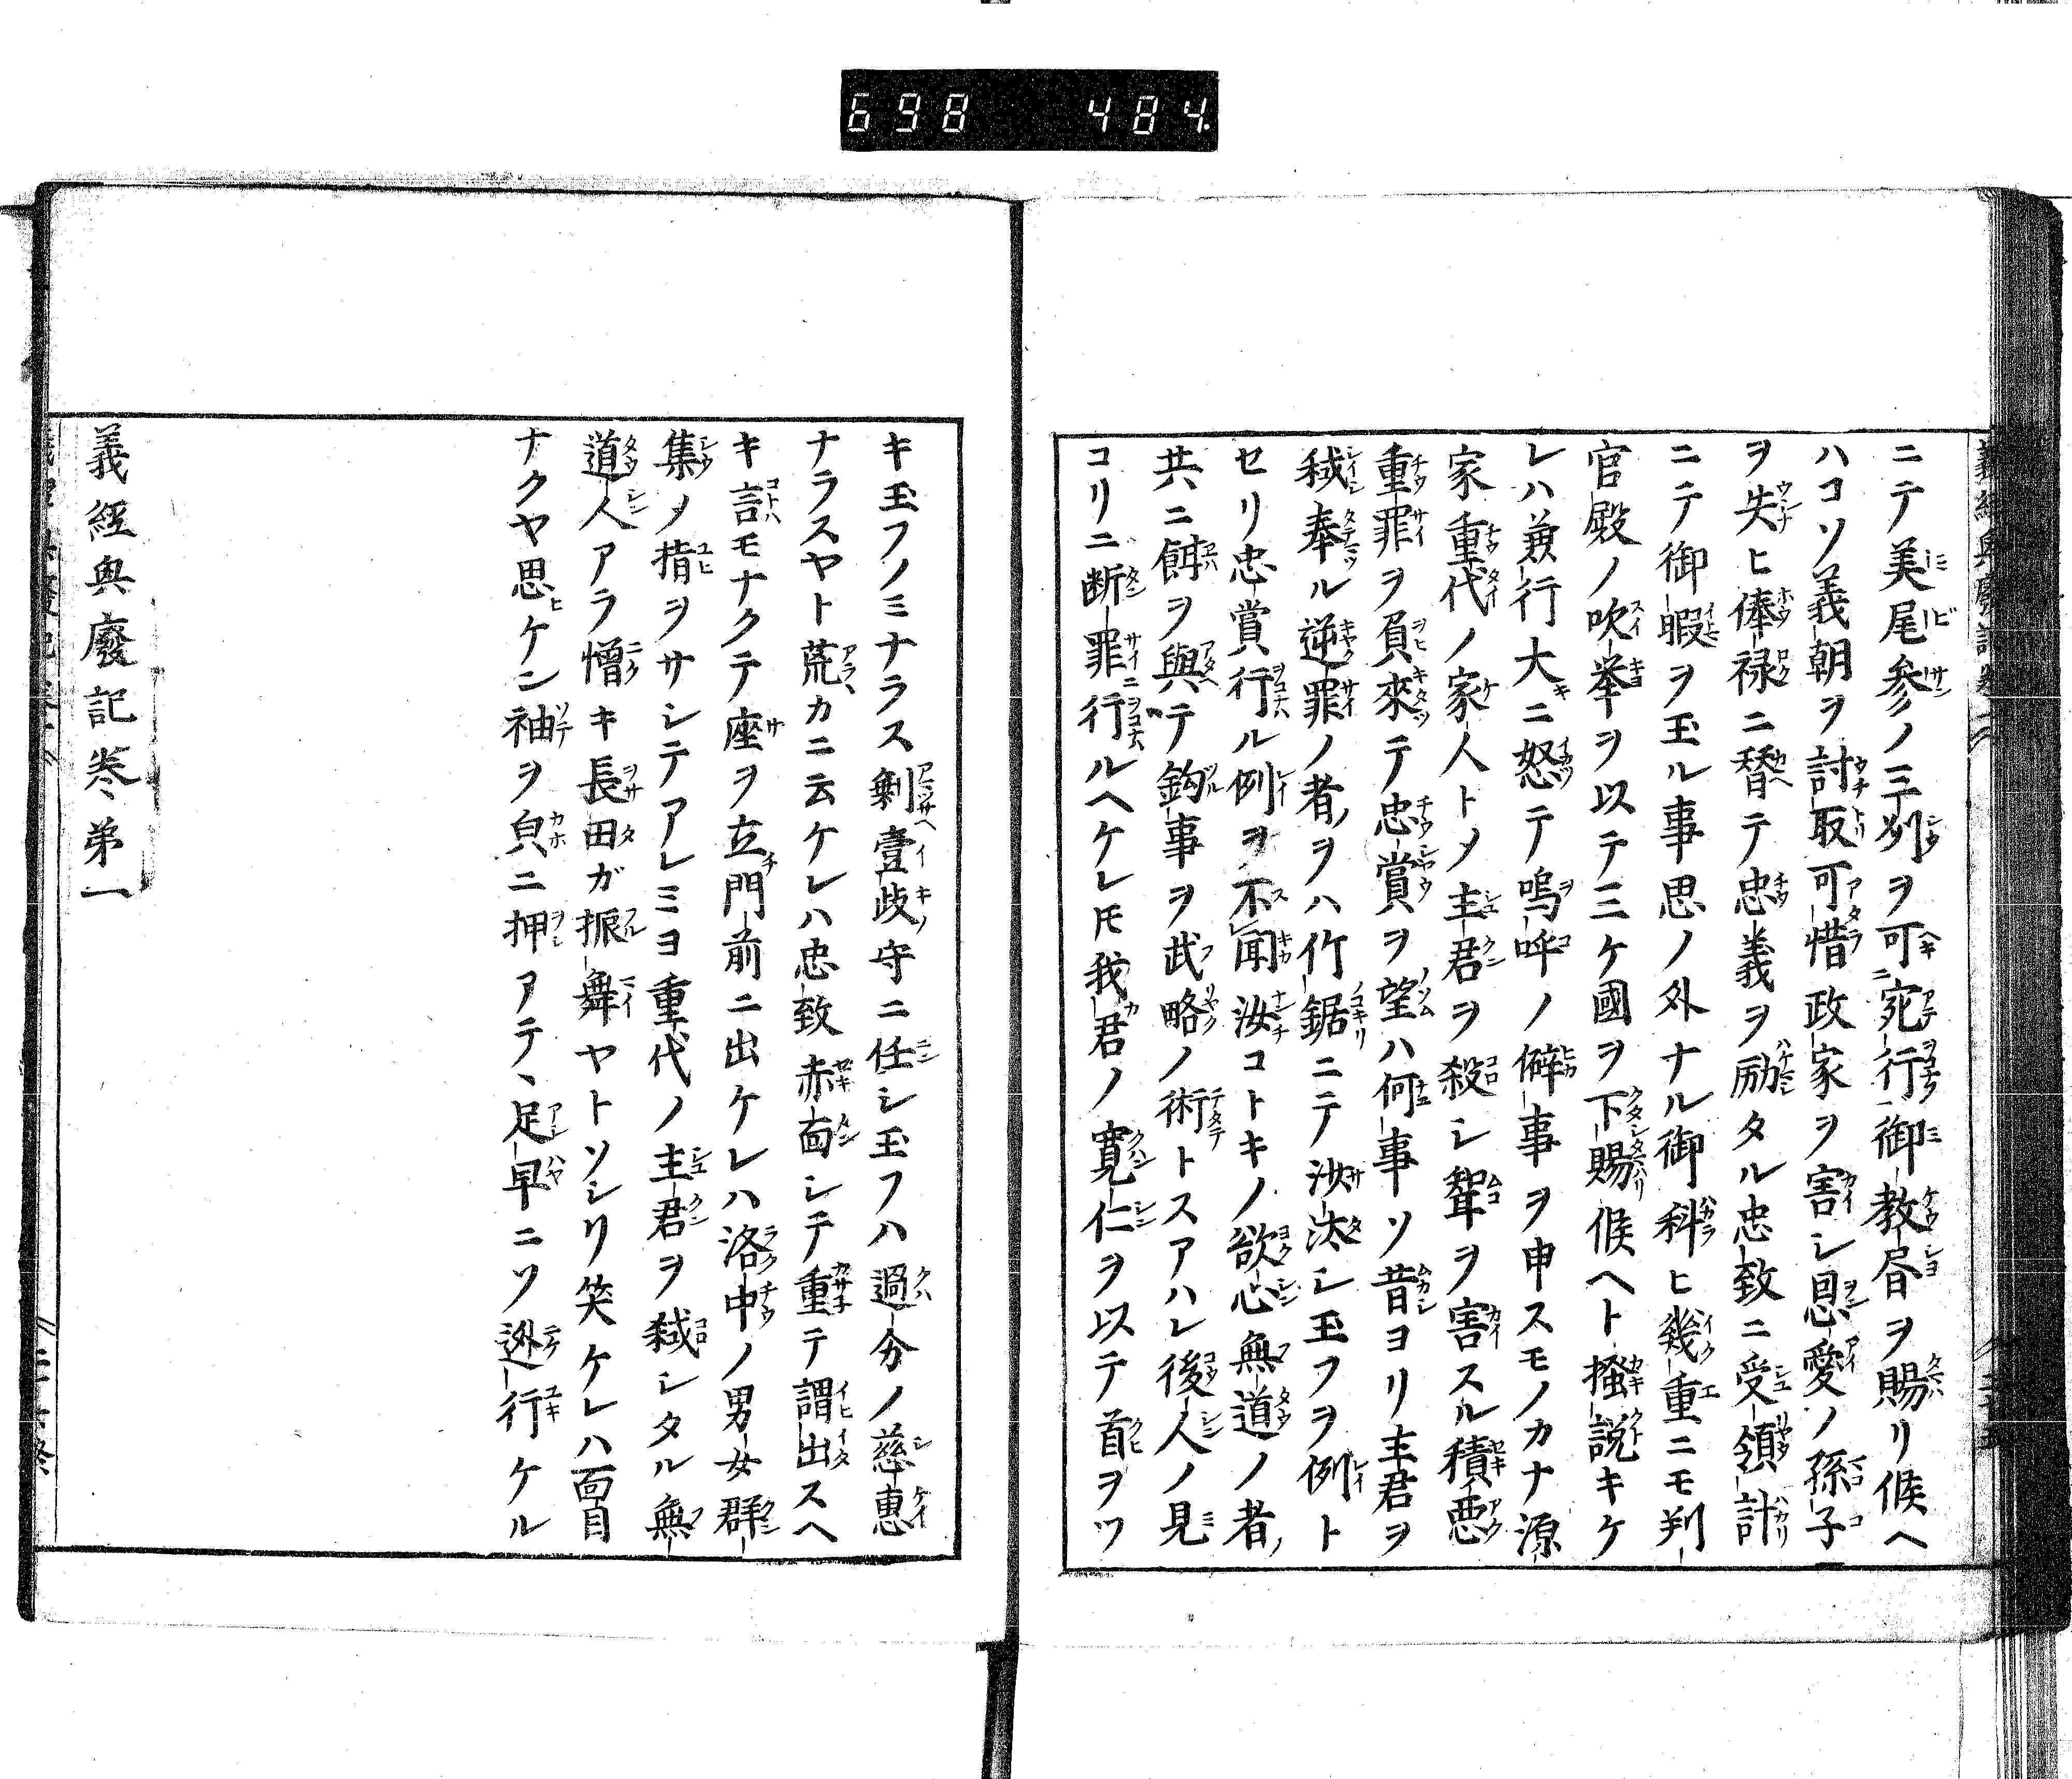 698 484.
ニテ美尾参ノ三州ヲ可宛行御教書ヲ賜リ候ヘ
ハコソ義朝ヲ討取可惜政家ヲ害シ恩愛ノ孫子
ヲ失ヒ俸禄ニ替テ忠義ヲ励タル忠致ニ受領計
ニテ御暇ヲ玉ル事思ノ外ナル御科ヒ幾重ニモ判
官殿ノ吹挙ヲ以テ三ケ國ヲ下賜候ヘト掻説キケ
レハ兼行大ニ怒テ嗚呼ノ僻事ヲ申スモノカナ源
家重代ノ家人トメ主君ヲ殺シ聟ヲ害スル積悪
重罪ヲ負來テ忠賞ヲ望ハ何事ソ昔ヨリ主君ヲ
弑奉ル逆罪ノ者ヲハ竹鋸ニテ沙汰シ玉フヲ例ト
セリ忠賞行ル例ヲ不聞汝コトキノ欲心無道ノ者ノ
共ニ餌ヲ與テ釣事ヲ武略ノ術トスアハレ後人ノ見
コリニ断罪行ルヘケレ𪜈我君ノ寛仁ヲ以テ首ヲツ
キ玉フノミナラス剰壹岐守ニ任シ玉フハ過分ノ慈惠
ナラスヤト荒カニ云ケレハ忠致赤面シテ重テ謂出スヘ
キ言モナクテ座ヲ立門前ニ出ケレハ洛中ノ男女群
集メ指ヲサシテアレミヨ重代ノ主君ヲ弑シタル無
道人アラ憎キ長田ガ振舞ヤトソシリ笑ケレハ面目
ナクヤ思ケン袖ヲ皃ニ押アテ、足早ニソ迯行ケル
義經興廢記巻第一